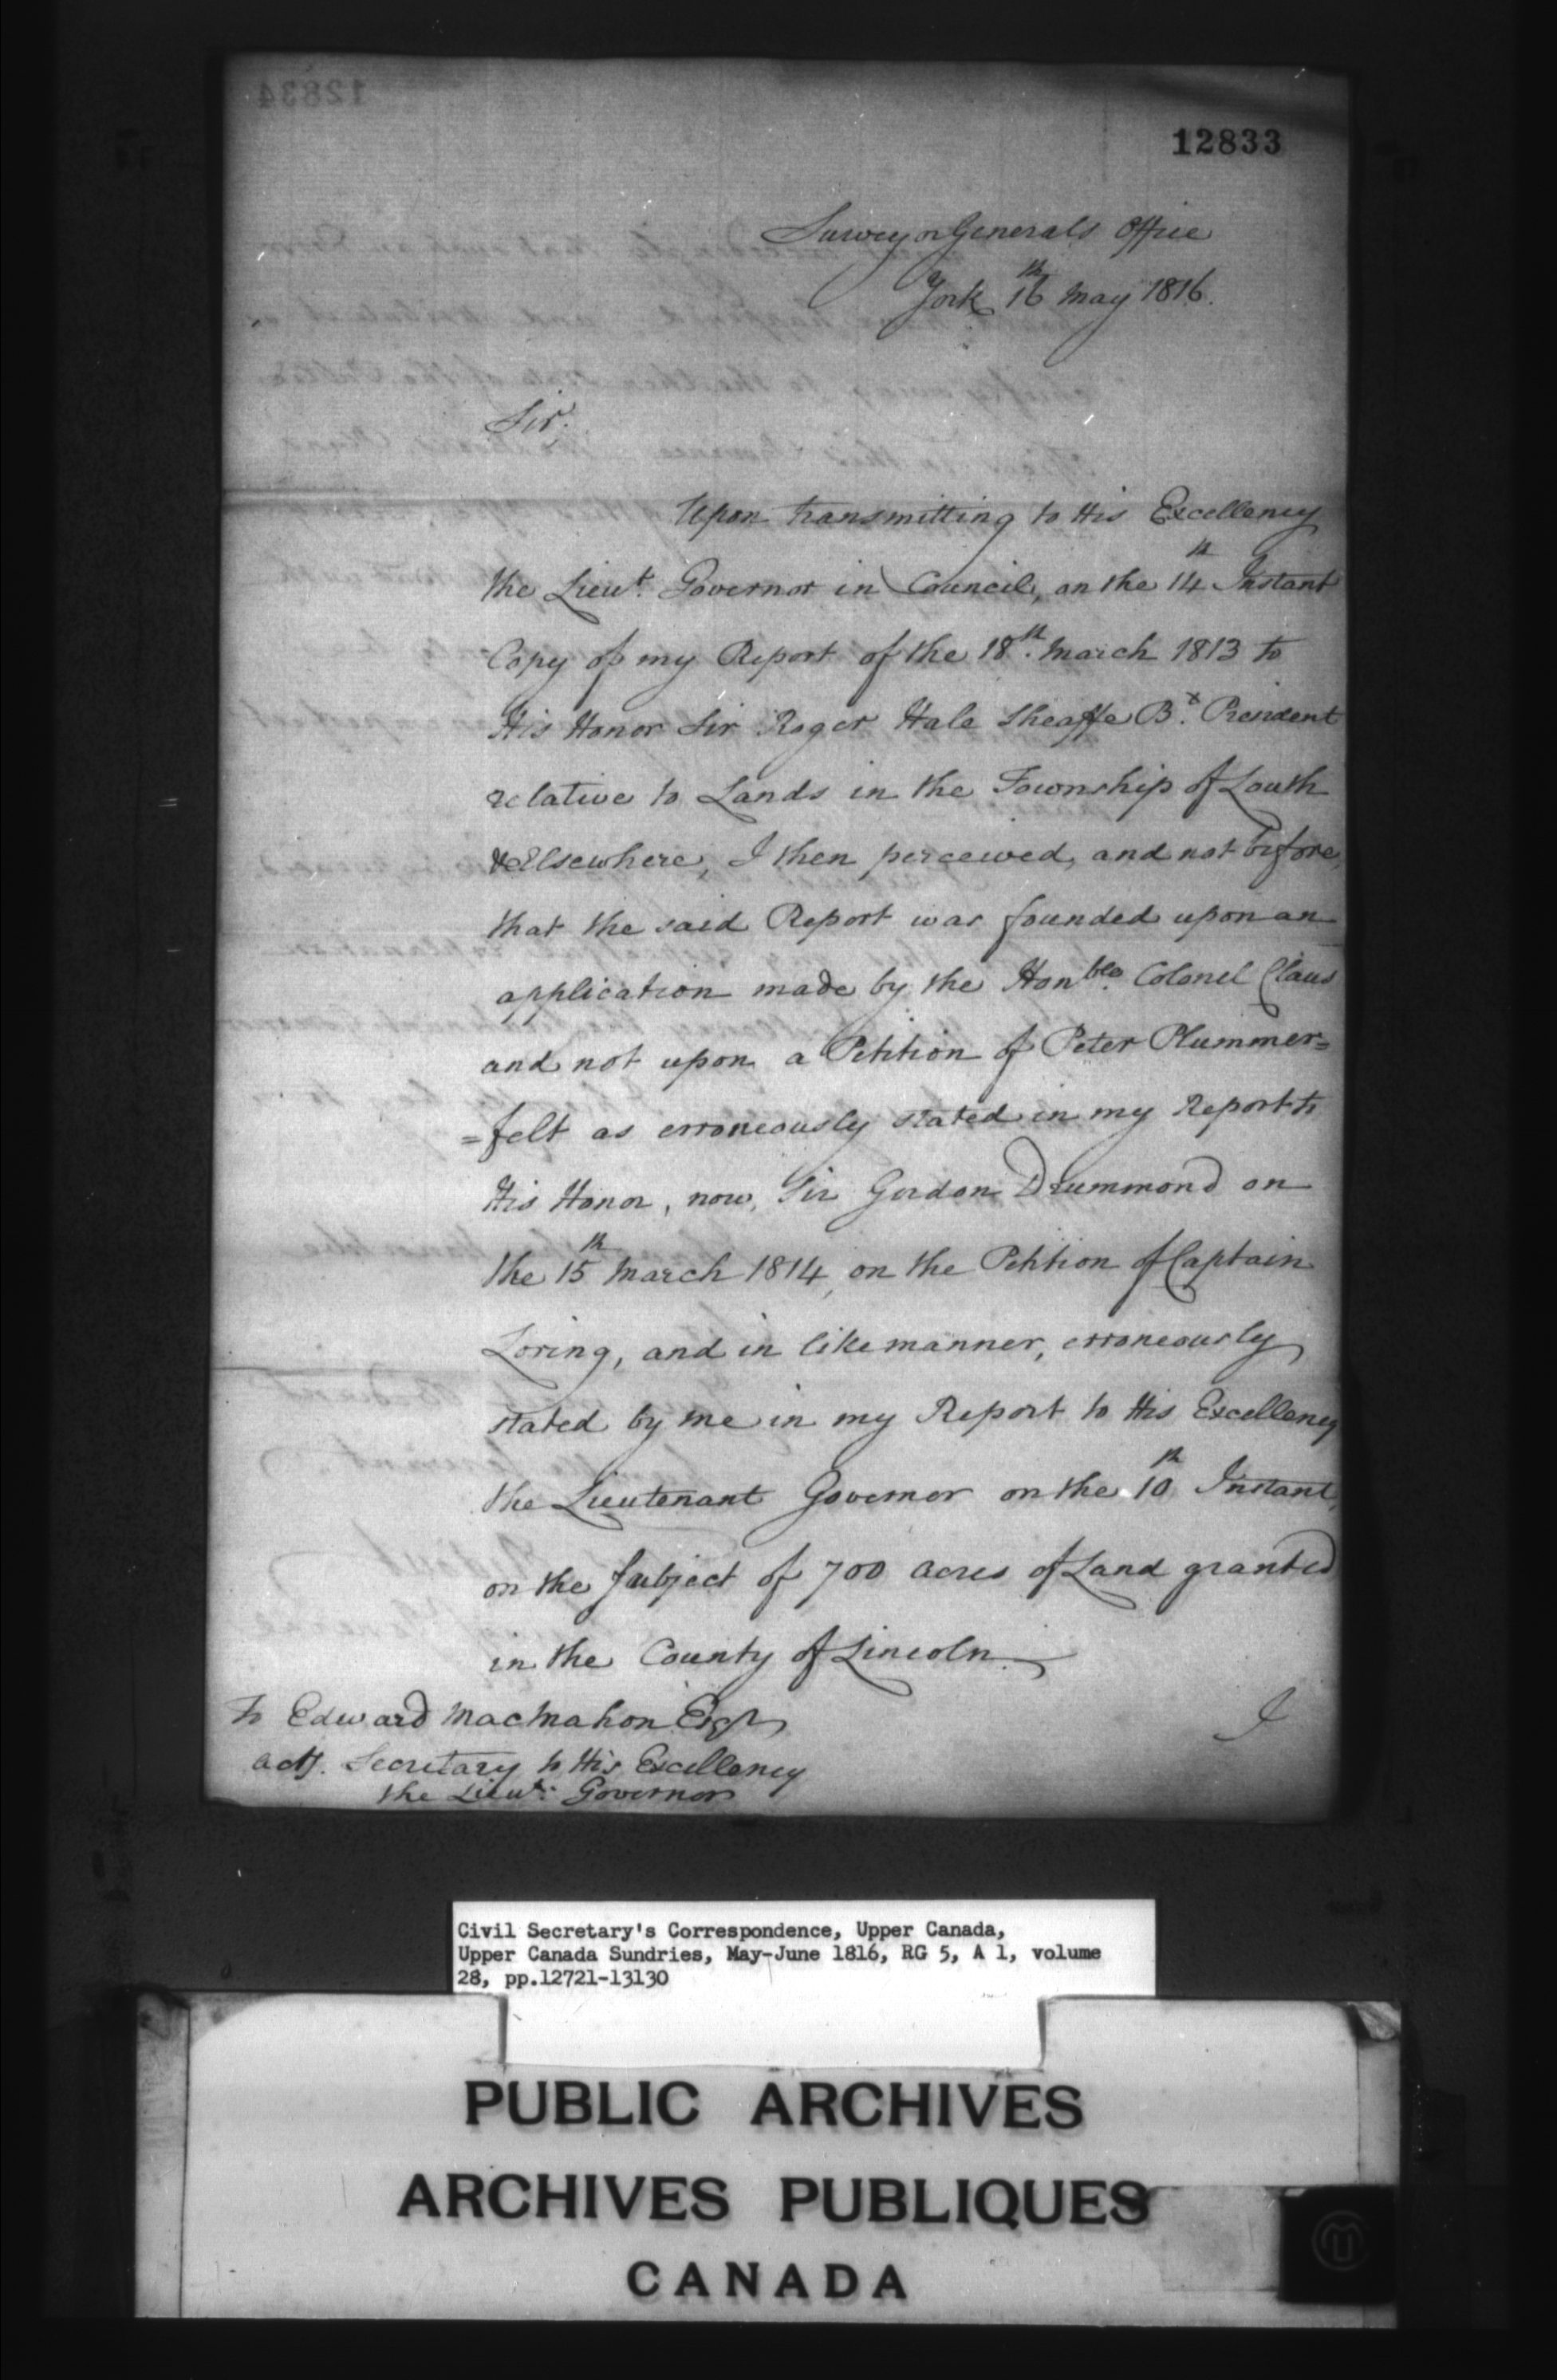 12834
12833
Surveyor Generals Office
York 16th May 1816.
Sir.
Upon transmitting to His Excellency
the Lieut. Governor in Council, on the 14th Instant
Copy of my Report of the 18th. March 1813 to
His Honor Sir Roger Hale Sheaffe Bt. President
relative to Lands in the Township of Louth
& Elsewhere, I then perceived, and not before,
that the said Report was founded upon an
application made by the Honble. Colonel Claus
and not upon a Petition of Peter Plummer=
=felt as erroneously stated in my Report to
His Honor, now, Sir Gordon Drummond on
the 15th March 1814, on the Petition of Captain
Loring, and in like manner, erroneously
stated by me in my Report to His Excellency
the Lieutenant Governor on the 10th Instant,
on the subject of 700 acres of Land granted
in the County of Lincoln.
I
To Edward MacMahon Esqr
actg. Secretary to His Excellency
the Lieut. Governor
Civil Secretary's Correspondence, Upper Canada,
Upper Canada Sundries, May-June 1816, RG 5, A 1, volume
28, pp.12721-13130
PUBLIC ARCHIVES
ARCHIVES PUBLIQUES
CANADA